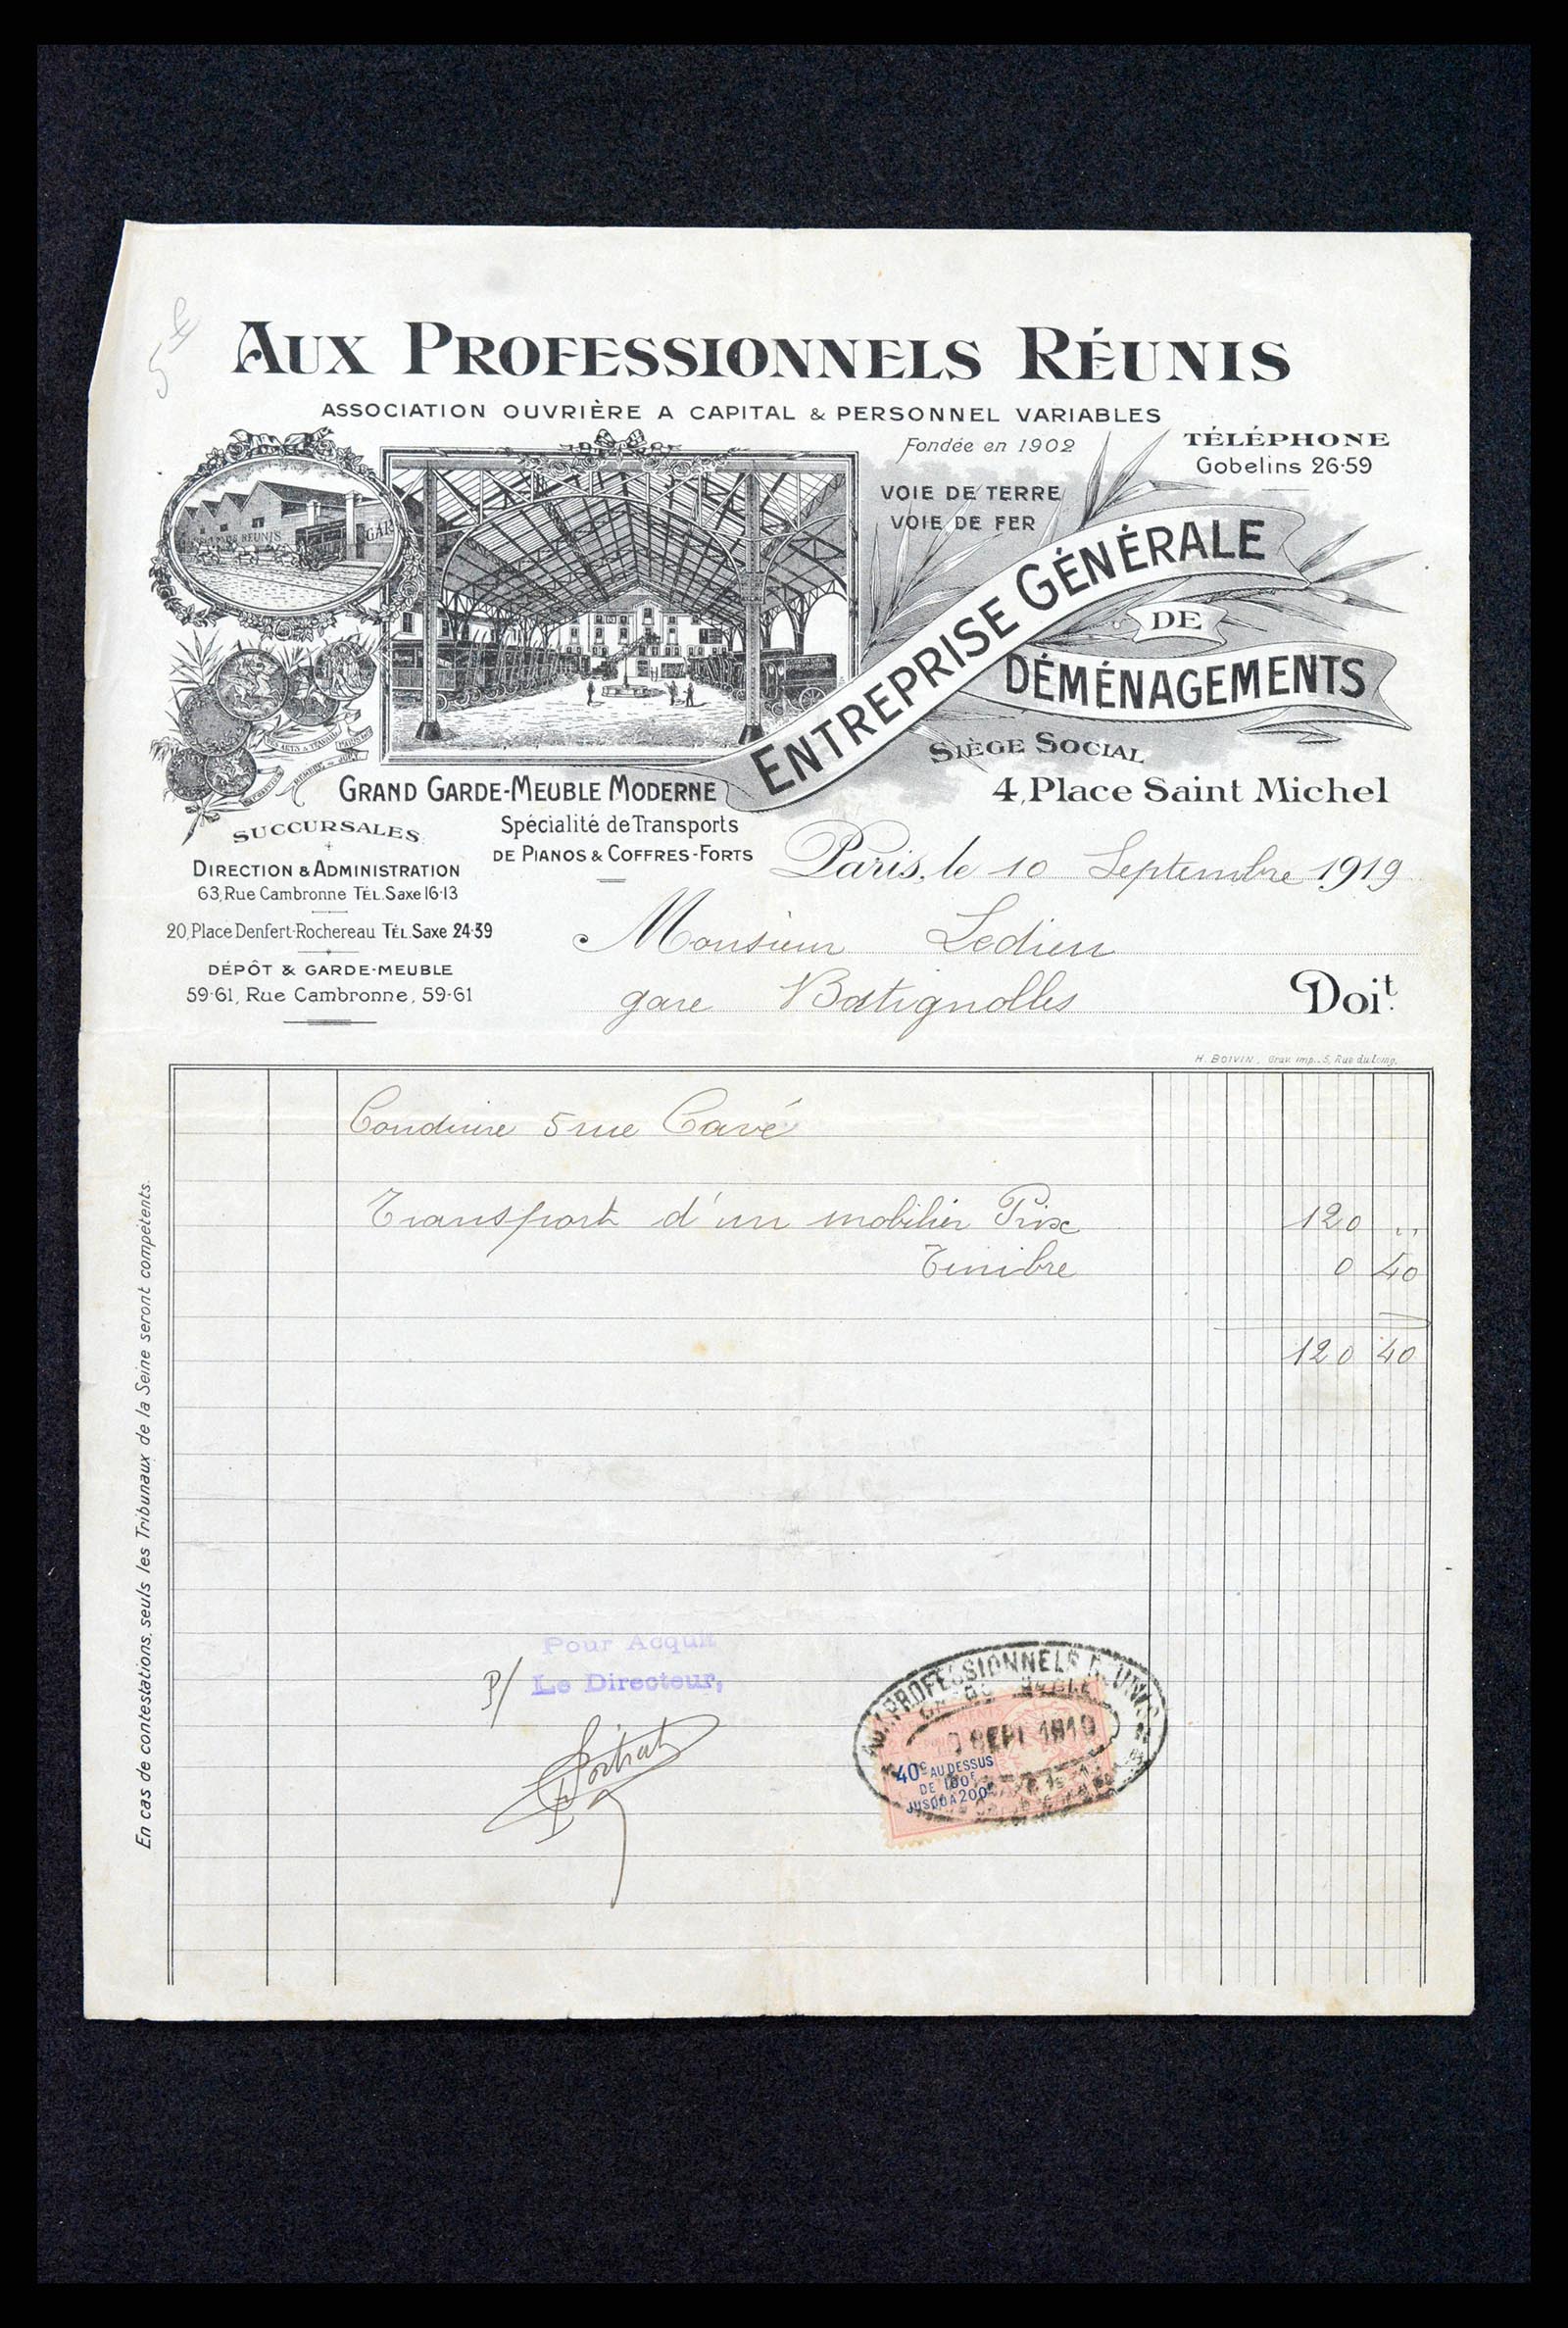 AUX PROFESSIONNELS RÉUNIS
ASSOCIATION OUVRIÈRE A CAPITAL & PERSONNEL VARIABLES
Fondée en 1902
TÉLÉPHONE
Gobelins 26-59
VOIE DE TERRE
VOIE DE FER
RÉUNIS
GAR
ENTREPRISE GÉNÉRALE
DE
DÉMÉNAGEMENTS
SIÈGE SOCIAL
4, Place Saint Michel
GRAND GARDE-MEUBLE MODERNE
Spécialité de Transports
DE PIANOS & COFFRES-FORTS
SUCCURSALES
DIRECTION & ADMINISTRATION
63, Rue Cambronne TÉL. Saxe 16-13
20, Place Denfert-Rochereau TÉL. Saxe 24-39
DÉPÔT & GARDE-MEUBLE
59-61, Rue Cambronne, 59-61
Paris, le 10 Septembre 1919
Monsieur Ledieu
gare Batignolles Doit.
H. BOIVIN, Grav. imp., 5, Rue du
Conduire 5 rue Cavé
Transport d'un mobilier Prix 120 ,,
Timbre 0 40
120 40
En cas de contestations, seuls les Tribunaux de la Seine seront compétents.
Pour Acquit
P/ Le Directeur,
AUX PROFESSIONNELS RÉUNIS
SEPT 1919
40c AU DESSUS
DE 100F
JUSQU'A 200F